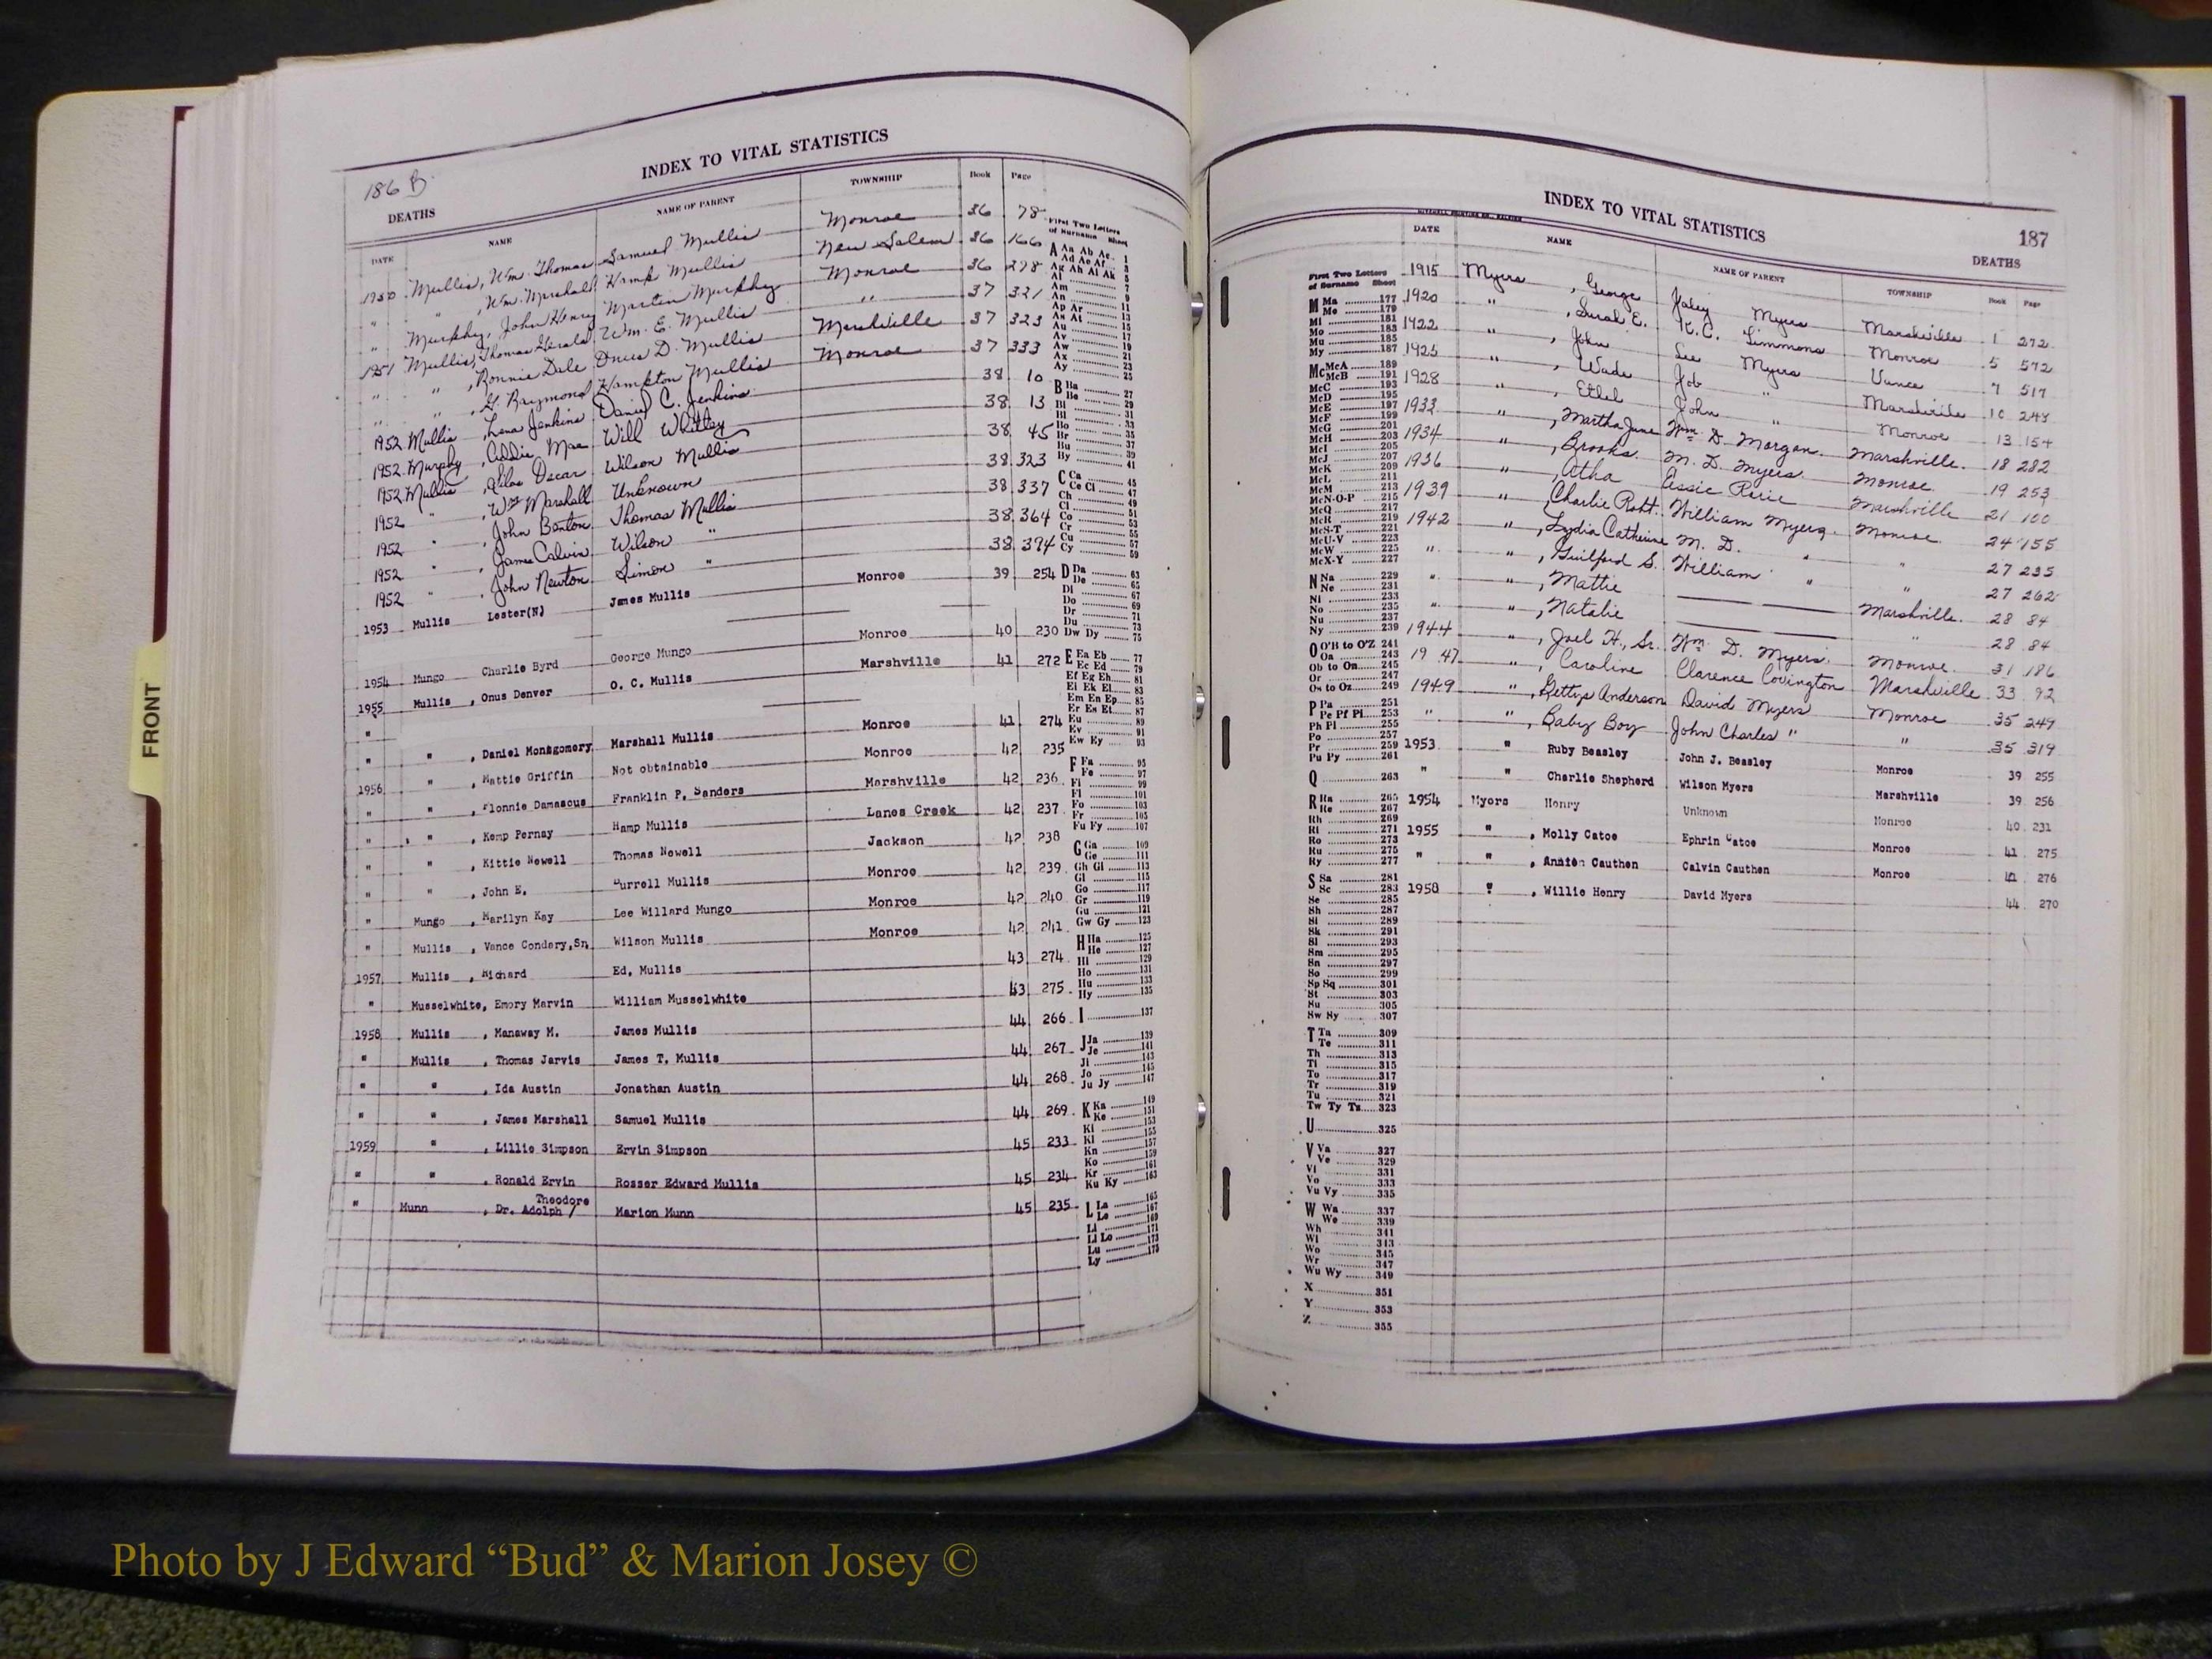 INDEX TO VITAL STATISTICS
186 B
DEATHS
DATE NAME NAME OF PARENT TOWNSHIP Book Page
1950 Mullis, Wm. Thomas Samuel Mullis Monroe 36 78
" " , Wm. Marshall Kemp Mullis New Salem 36 166
" Murphy, John Henry Martin Murphy Monroe 36 278
1951 Mullis, Thomas Gerald Wm. E. Mullis " 37 321
" " , Ronnie Dale Onus D. Mullis Marshville 37 323
" " , G. Raymond Hampton Mullis Monroe 37 333
1952 Mullis , Lena Jenkins Daniel C. Jenkins 38 10
1952 Murphy , Addie Mae Will Whitley 38 13
1952 Mullis , Silas Oscar Wilson Mullis 38 45
1952 " , Wm Marshall Unknown 38 323
1952 " , John Benton Thomas Mullis 38 337
1952 " , James Calvin Wilson " 38 364
1952 " , John Newton Simon " 38 394
1953 Mullis Lester(N) James Mullis Monroe 39 254
1954 Mungo Charlie Byrd George Mungo Monroe 40 230
1955 Mullis , Onus Denver O. C. Mullis Marshville 41 272
" " , Daniel Montgomery Marshall Mullis Monroe 41 274
1956 " , Hattie Griffin Not obtainable Monroe 42 235
" " , Flonnie Damascus Franklin P. Sanders Marshville 42 236
" " , Kemp Pernay Hamp Mullis Lanes Creek 42 237
" " , Kittie Newell Thomas Newell Jackson 42 238
" " , John E. Burrell Mullis Monroe 42 239
" Mungo , Marilyn Kay Lee Willard Mungo Monroe 42 240
" Mullis , Vance Condary, Sr. Wilson Mullis Monroe 42 241
1957 Mullis , Richard Ed. Mullis 43 274
" Musselwhite, Emory Marvin William Musselwhite 43 275
1958 Mullis , Manaway M. James Mullis 44 266
" Mullis , Thomas Jarvis James T. Mullis 44 267
" " , Ida Austin Jonathan Austin 44 268
" " , James Marshall Samuel Mullis 44 269
1959 " , Lillie Simpson Ervin Simpson 45 233
" " , Ronald Ervin Rosser Edward Mullis 45 234
Theodore
" Munn , Dr. Adolph / Marion Munn 45 235
First Two Letters
of Surname Sheet
A Aa Ab Ac 1
Ad Ae Af 3
Ag Ah Ai Ak 5
Al 7
Am 9
An 11
Ap Ar 13
As At 15
Au 17
Av 19
Aw 21
Ax 23
Ay 25
B Ba 27
Be 29
Bi 31
Bl 33
Bo 35
Br 37
Bu 39
By 41
C Ca 45
Ce Ci 47
Ch 49
Cl 51
Co 53
Cr 55
Cu 57
Cy 59
D Da 63
De 65
Di 67
Do 69
Dr 71
Du 73
Dw Dy 75
E Ea Eb 77
Ec Ed 79
Ef Eg Eh 81
Ei Ek El 83
Em En Ep 85
Er Es Et 87
Eu 89
Ev 91
Ew Ey 93
F Fa 95
Fe 97
Fi 99
Fl 101
Fo 103
Fr 105
Fu Fy 107
G Ga 109
Ge 111
Gh Gi 113
Gl 115
Go 117
Gr 119
Gu 121
Gw Gy 123
H Ha 125
He 127
Hi 129
Ho 131
Hu 133
Hy 135
I 137
J Ja 139
Je 141
Ji 143
Jo 145
Ju Jy 147
K Ka 149
Ke 151
Ki 153
Kl 155
Kn 157
Ko 159
Kr 161
Ku Ky 163
L La 165
Le 167
Li 169
Ll Lo 171
Lu 173
Ly 175
INDEX TO VITAL STATISTICS
187
DEATHS
DATE NAME NAME OF PARENT TOWNSHIP Book Page
1915 Myers , George Haley Myers Marshville 1 272
1920 " , Sarah E. K. C. Simmons Monroe 5 572
1922 " , John Lee Myers Vance 7 517
1925 " , Wade Job " Marshville 10 248
1928 " , Ethel John " Monroe 13 154
1933 " , Martha Jane Wm. D. Morgan Marshville 18 282
1934 " , Brooks M. D. Myers Monroe 19 253
1936 " , Atha Essie Marshville 21 100
1939 " , Charlie Robt. William Myers Monroe 24 155
1942 " , Lydia Catherine M. D. " " 27 235
" " , Guilford S. William " " 27 262
" " , Mattie Marshville 28 84
" " , Natalie " 28 84
1944 " , Joel H., Sr. Wm. D. Myers Monroe 31 186
1947 " , Caroline Clarence Covington Marshville 33 92
1949 " , Bettys Anderson David Myers Monroe 35 249
" " , Baby Boy John Charles " " 35 319
1953 " Ruby Beasley John J. Beasley Monroe 39 255
" " Charlie Shepherd Wilson Myers Marshville 39 256
1954 Myers Henry Unknown Monroe 40 231
1955 " , Molly Catoe Ephrin Catoe Monroe 41 275
" " , Annien Cauthen Calvin Cauthen Monroe 41 276
1958 " , Willie Henry David Myers 44 270
First Two Letters
of Surname Sheet
M Ma 177
Me 179
Mi 181
Mo 183
Mu 185
My 187
Mc McA 189
McB 191
McC 193
McD 195
McE 197
McF 199
McG 201
McH 203
McI 205
McJ 207
McK 209
McL 211
McM 213
McN-O-P 215
McQ 217
McR 219
McS-T 221
McU-V 223
McW 225
McX-Y 227
N Na 229
Ne 231
Ni 233
No 235
Nu 237
Ny 239
O O'B to O'Z 241
Oa 243
Ob to On 245
Or 247
Os to Oz 249
P Pa 251
Pe Pf Pi 253
Ph Pl 255
Po 257
Pr 259
Pu Py 261
Q 263
R Ra 265
Re 267
Rh 269
Ri 271
Ro 273
Ru 275
Ry 277
S Sa 281
Sc 283
Se 285
Sh 287
Si 289
Sk 291
Sl 293
Sm 295
Sn 297
So 299
Sp Sq 301
St 303
Su 305
Sw Sy 307
T Ta 309
Te 311
Th 313
Ti 315
To 317
Tr 319
Tu 321
Tw Ty Tz 323
U 325
V Va 327
Ve 329
Vi 331
Vo 333
Vu Vy 335
W Wa 337
We 339
Wh 341
Wi 343
Wo 345
Wr 347
Wu Wy 349
X 351
Y 353
Z 355
FRONT
Photo by J Edward “Bud” & Marion Josey ©